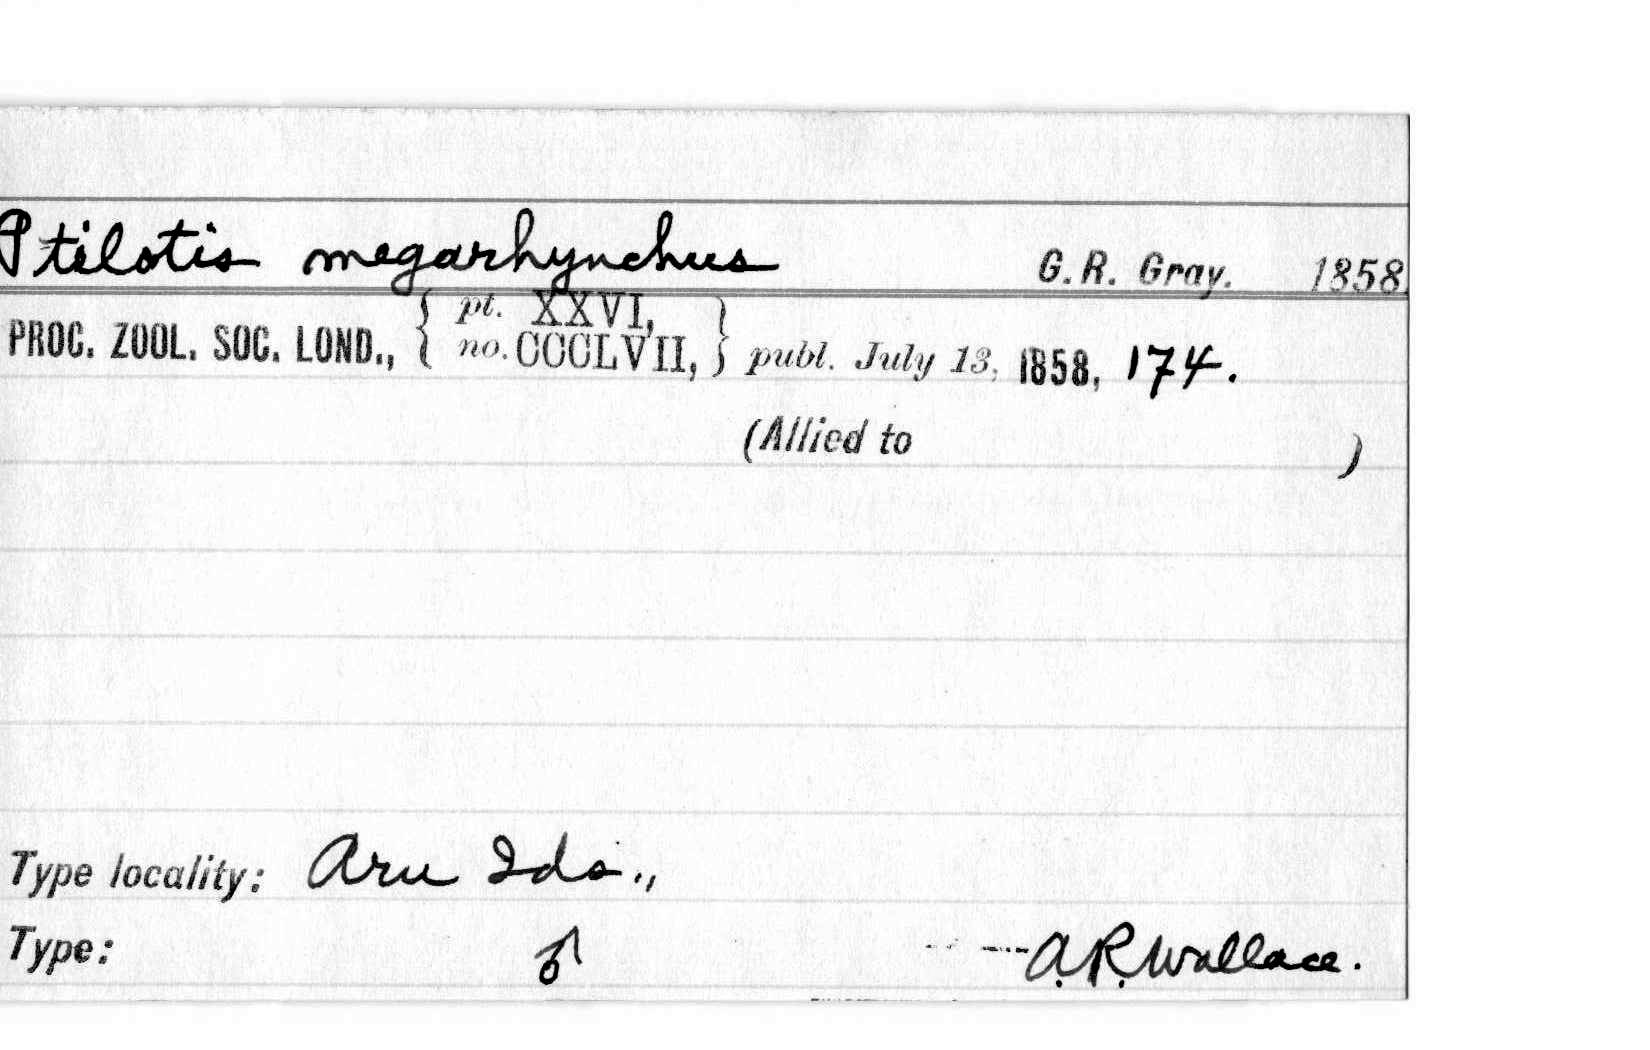 Ptilotis megarhynchus G.R. Gray. 1858
PROC. ZOOL. SOC. LOND., { pt. XXVI, no. CCCLVII, } publ. July 13, 1858, 174.
(Allied to )
Type locality: Aru Ids.,
Type: ♂ A.R. Wallace.